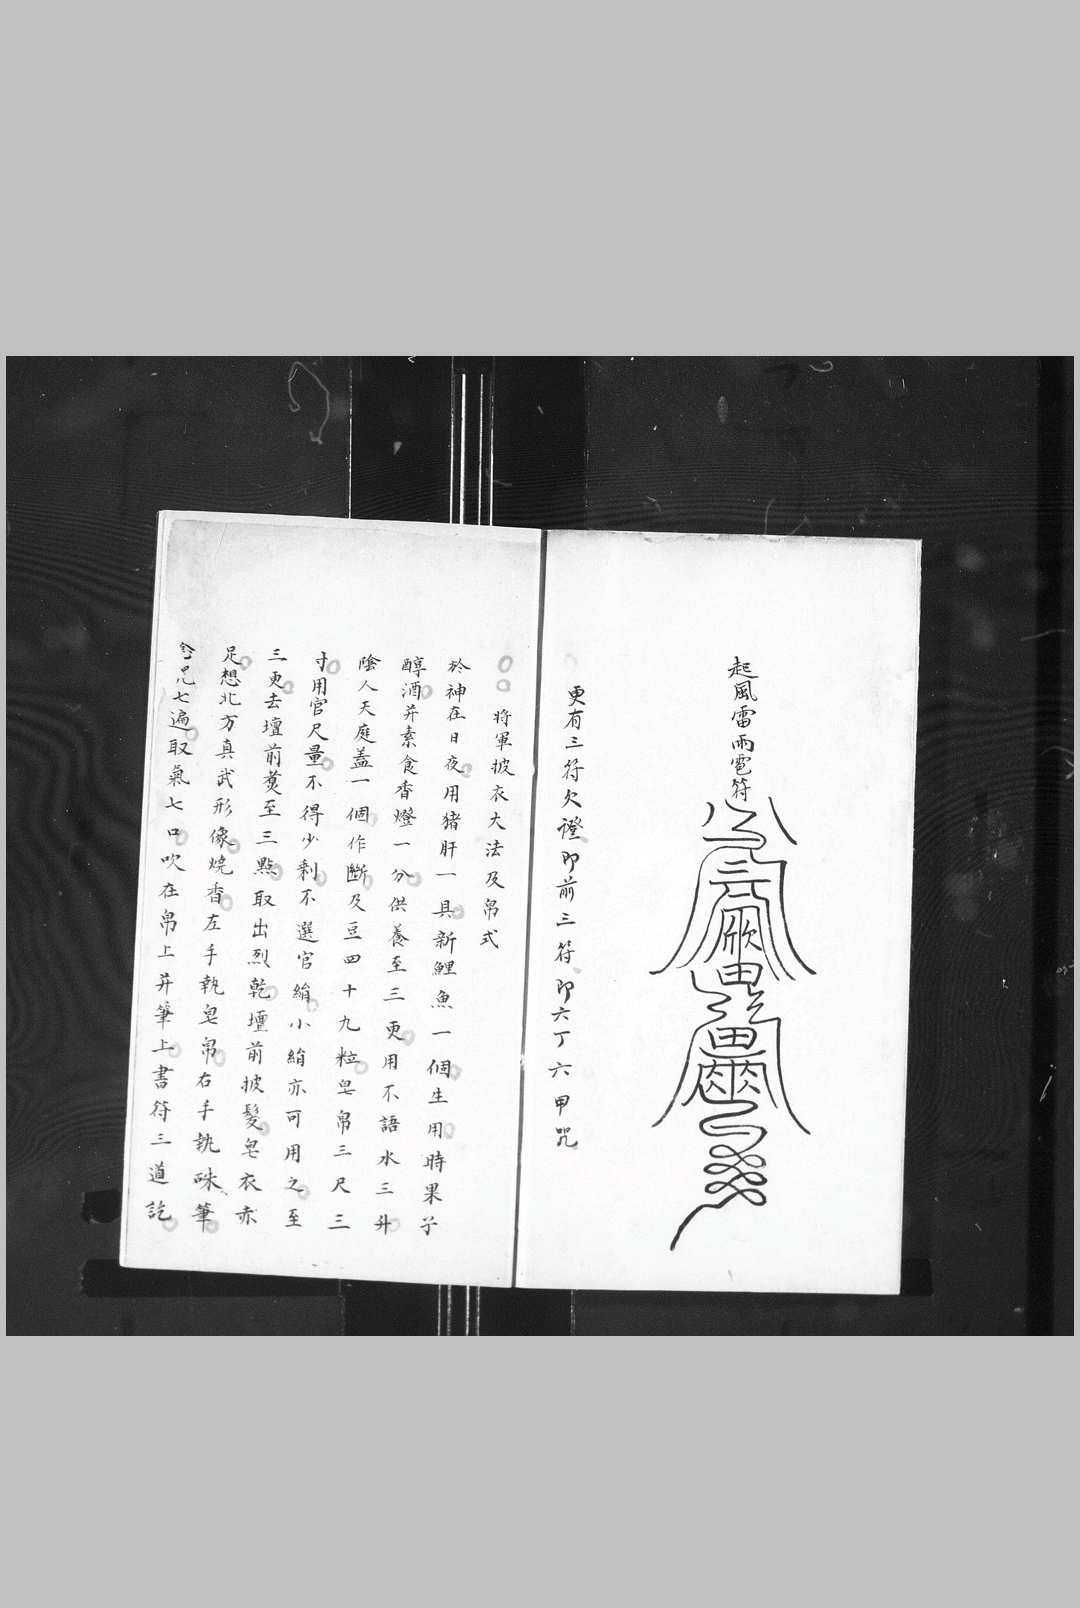 起風雷雨雹符
更有三符欠證即前三符即六丁六甲咒
將軍披衣大法及帛式
於神在日夜用猪肝一具新鯉魚一個生用時果子
醇酒并素食香燈一分供養至三更用不語水三升
陰人天庭蓋一個作斷及豆四十九粒皂帛三尺三
寸用官尺量不得少剩不選官絹小絹亦可用之至
三更去壇前𤎅至三點取出烈乾壇前披髮皂衣赤
足想北方真武形像燒香左手執皂帛右手執硃筆
念咒七遍取氣七口吹在帛上并筆上書符三道訖